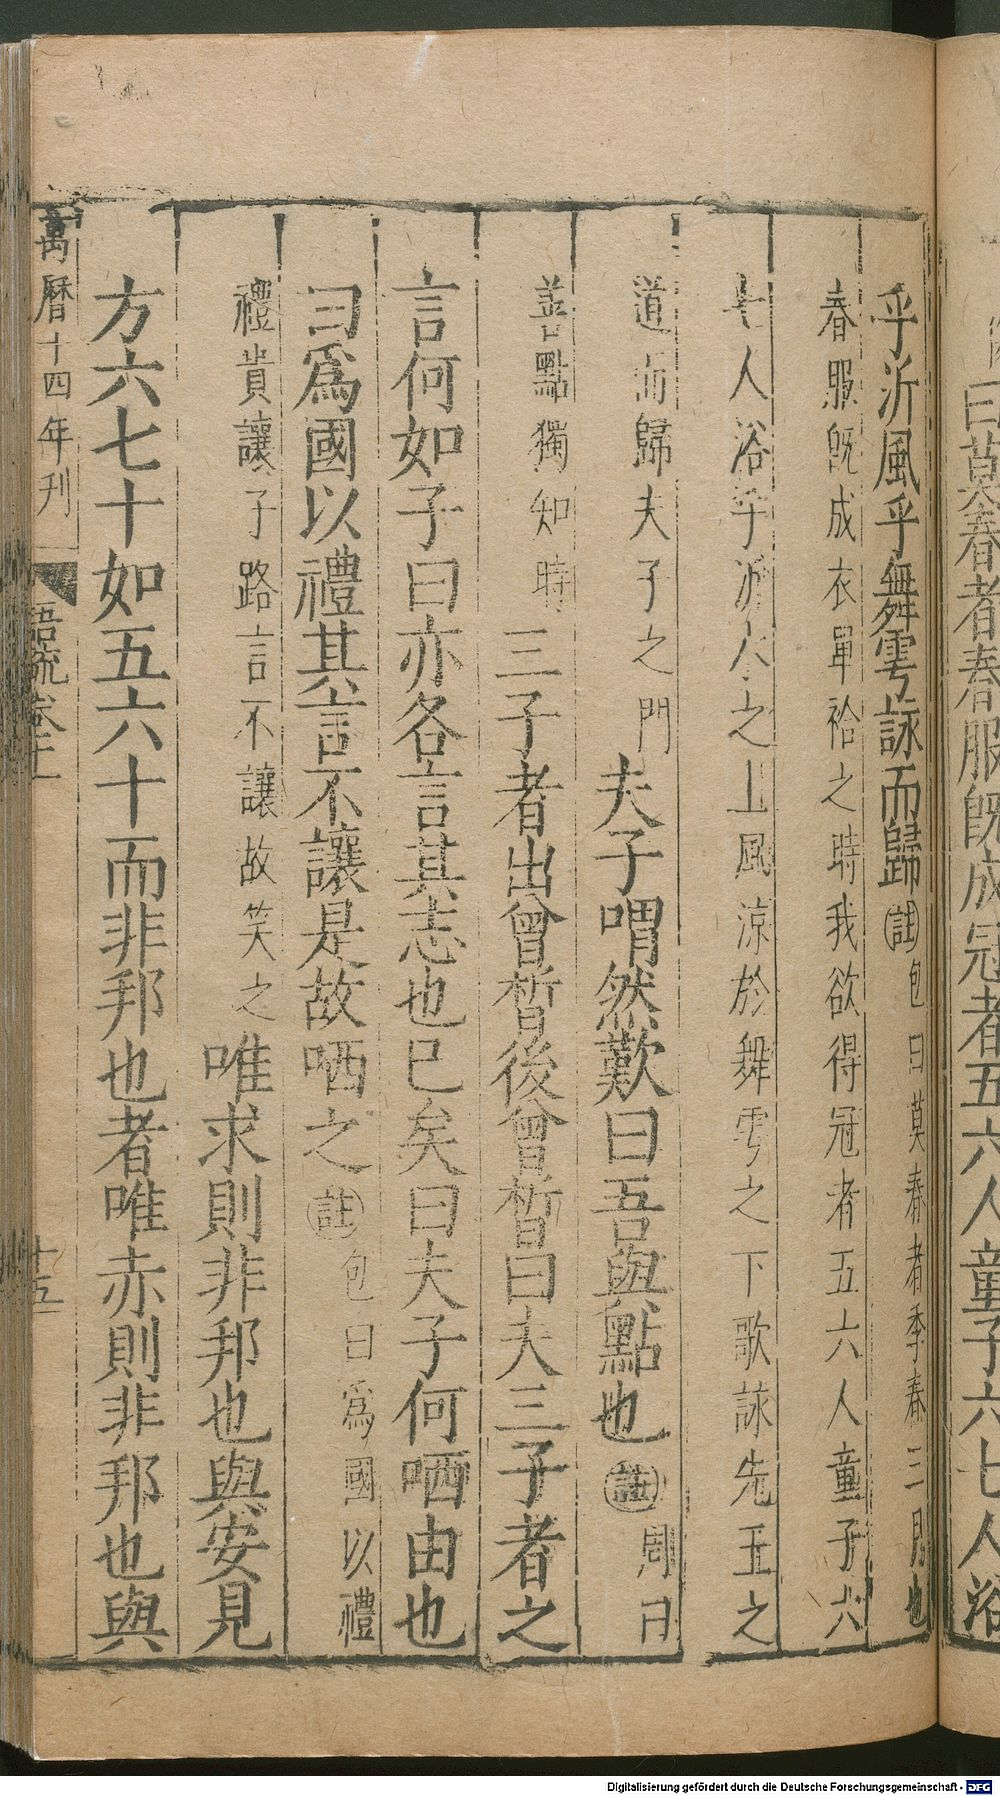 曰莫春者春服既成冠者五六人童子六七人浴
乎沂風乎舞雩詠而歸註包曰莫春者季春三月也
春服既成衣單袷之時我欲得冠者五六人童子六
七人浴乎沂水之上風涼於舞雩之下歌詠先王之
道而歸夫子之門夫子喟然歎曰吾與點也註周曰
善點獨知時三子者出曾晳後曾晳曰夫三子者之
言何如子曰亦各言其志也已矣曰夫子何哂由也
曰爲國以禮其言不讓是故哂之註包曰爲國以禮
禮貴讓子路言不讓故笑之唯求則非邦也與安見
方六七十如五六十而非邦也者唯赤則非邦也與
萬曆十四年刊
語疏卷十一
十五
Digitalisierung gefördert durch die Deutsche Forschungsgemeinschaft - DFG